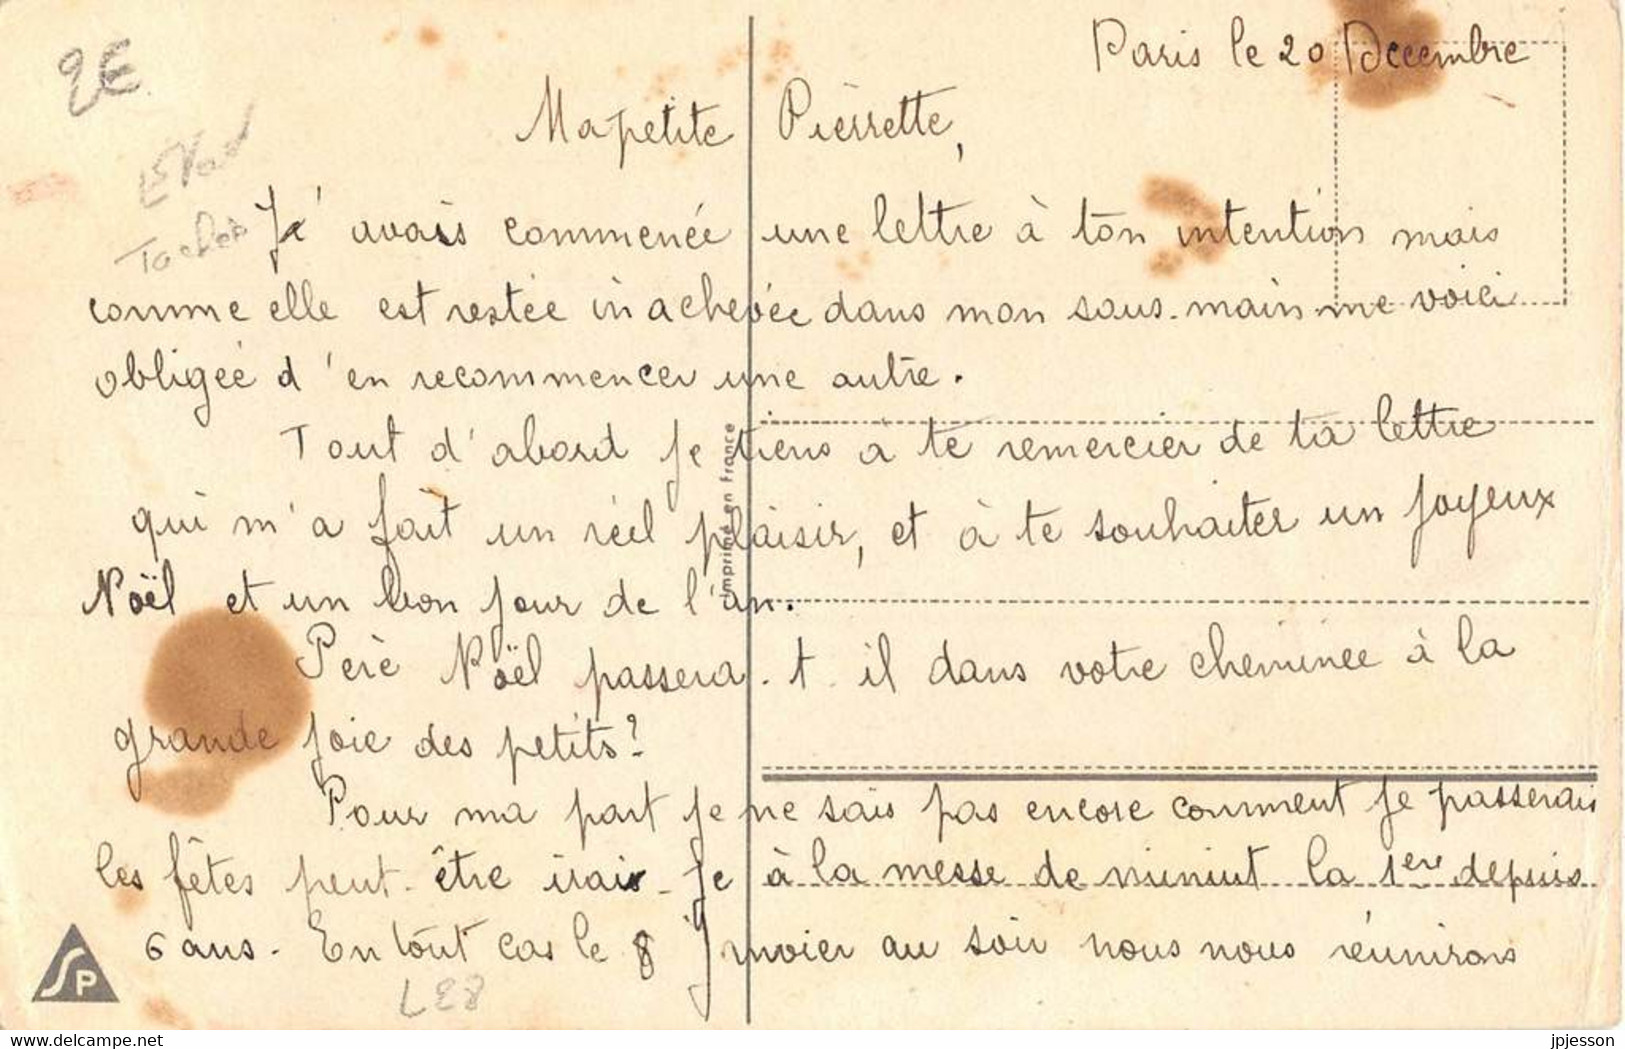 Paris le 20 Décembre
2€
Ma petite Pierrette,
Etat
Taches
J'avais commencée une lettre à ton intention mais
comme elle est restée inachevée dans mon sous-main me voici
obligée d'en recommencer une autre.
Tout d'abord je tiens à te remercier de ta lettre
qui m'a fait un réel plaisir, et à te souhaiter un joyeux
Noël et un bon jour de l'an.
Père Noël passera-t-il dans votre cheminée à la
grande joie des petits?
Pour ma part je ne sais pas encore comment je passerais
les fêtes peut-être irais-je à la messe de minuit la 1ère depuis
6 ans. En tout cas le 8 janvier au soir nous nous réunirons
Imprimé en France
SP
L28
delcampe.net
jpjesson